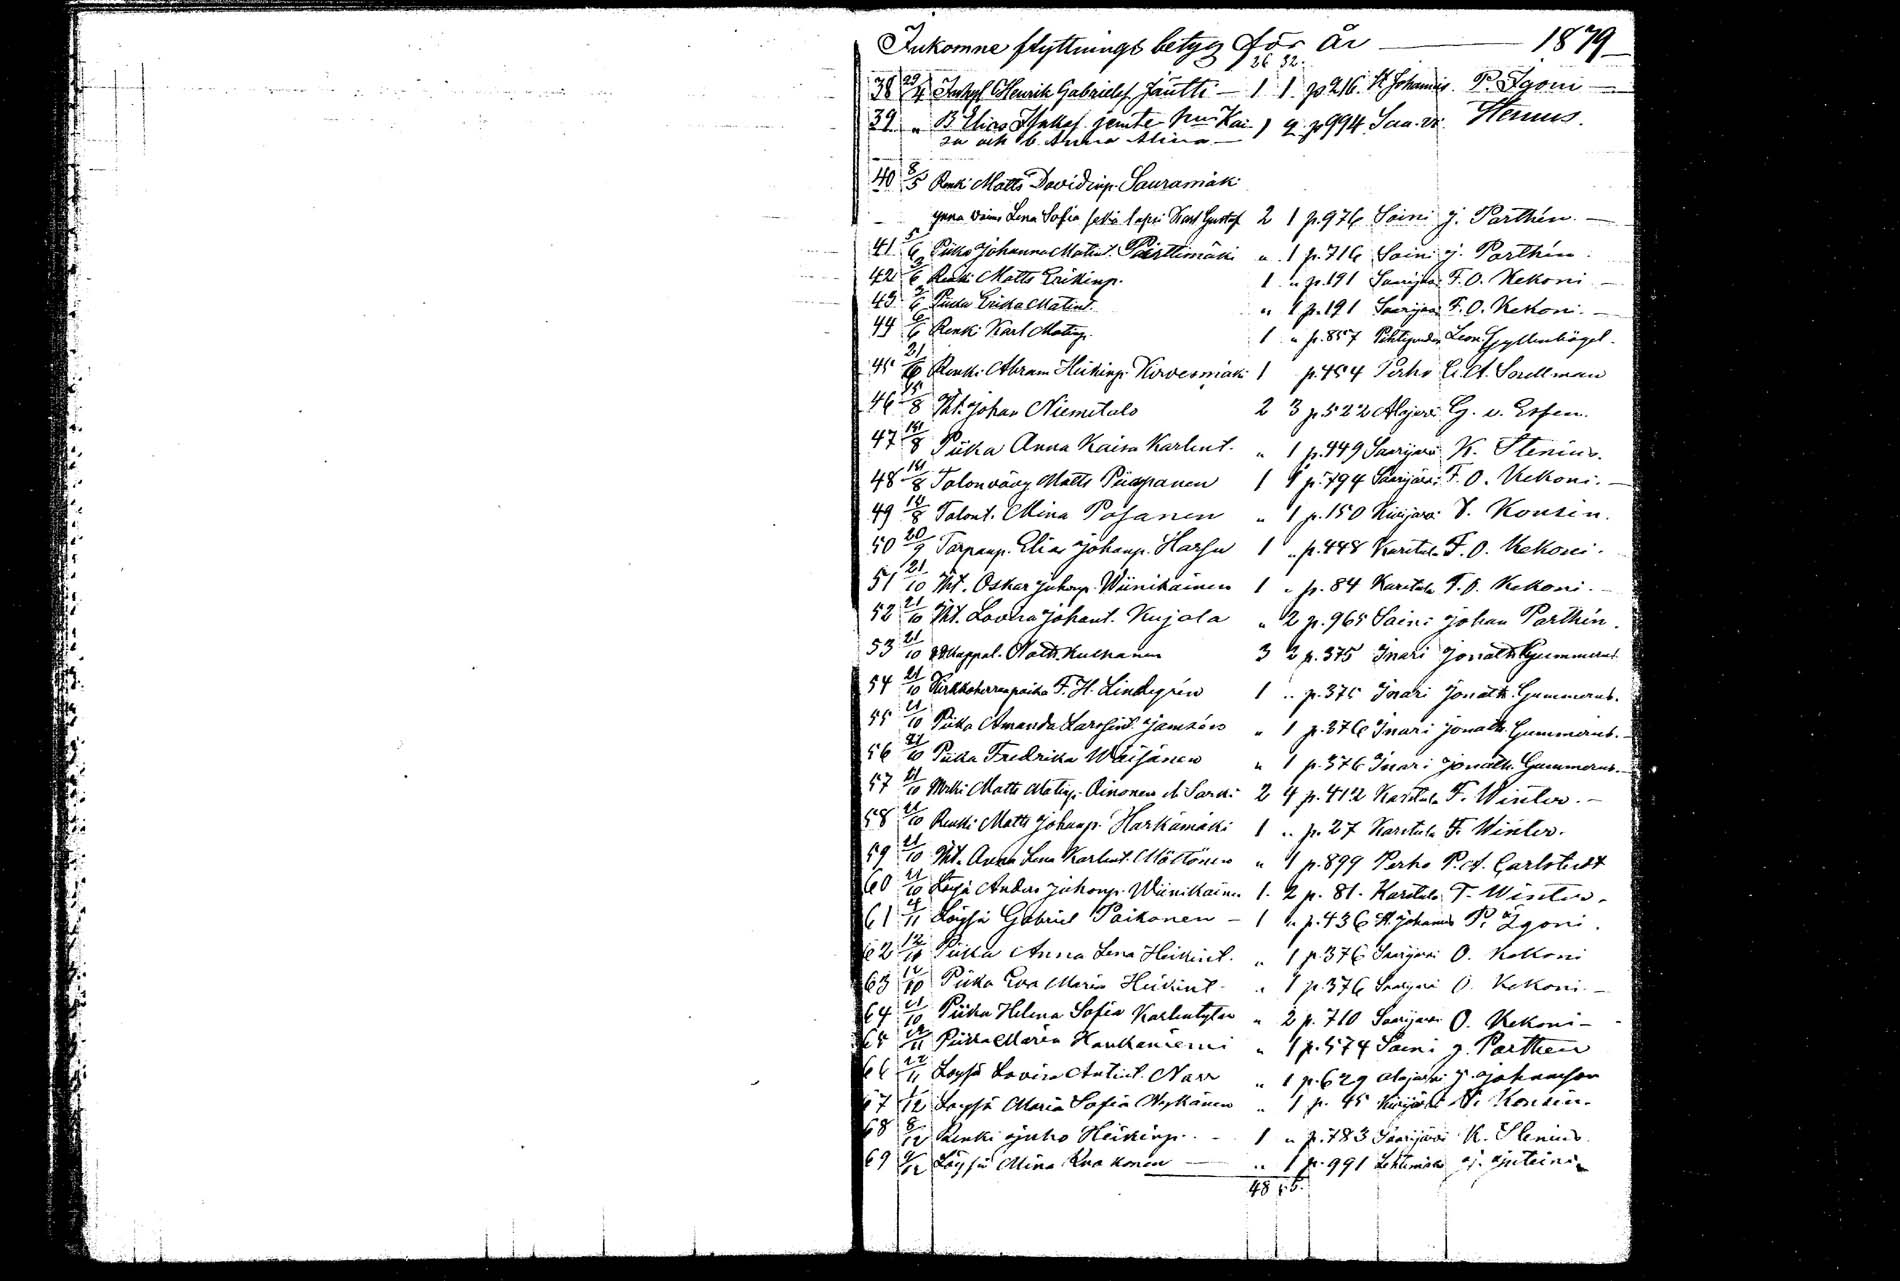 Inkomne flyttnings betyg för år — 1879
26 32.
38 29/4 Inhys Henrik Gabrielsf. Jäutti — 1 1. p 216. St Johannis. P. Igoni —
39 " B Elias jemte hu Kai- 1 2 p 994 Saa. vi. Henius.
sa och b. Anna Alina —
40 8/5 Renki Matts Davidinp. Sauramäki
ynna vaimo Lena Sofia sekä lapsi Karl Gustaf 2 1 p. 976 Soini j. Parthén. —
41 5/6 Piika Johanna Matint. Pärttimäki " 1 p. 716 Soini j. Parthén.
42 /6 Renki Matts Erikinp. 1 " p. 191 Saarijärvi F. O. Kekoni —
43 /6 Piika Erika Matint. " 1 p. 191 Saarijärvi F. O. Kekoni. —
44 6/6 Renki Karl Matinp. 1 " p. 857 Pihtipudas Leon. Gyllenbögel.
45 21/6 Renki Abram Heikinp. Kirvesmäki 1 p. 454 Perho C. A. Snellman
46 15/8 Iht. Johan Niemitalo 2 3 p. 522 Alajärvi G. v. Essen.
47 18/8 Piika Anna Kaisa Karlint. " 1 p. 449 Saarijärvi K. Stenius.
48 18/8 Talonvävy Matts Piispanen 1 1 p. 794 Saarijärvi F. O. Kekoni. —
49 18/8 Talont. Mina Posanen " 1 p. 150 Kivijärvi V. Konsin.
50 20/9 Torpanp. Elias Johanp. Harju 1 " p. 448 Karstula F. O. Kekoni.
51 21/10 Iht. Oskar Juhonp. Wiinikainen 1 " p. 84 Karstula F. O. Kekoni. —
52 21/10 Iht. Lovisa Johant. Kujala " 2 p. 965 Soini Johan Parthén.
53 21/10 Kappal. Math. Kuekanen 3 2 p. 375 Inari Jonath. Gummerus.
54 21/10 Kirkkoherranpoika F. H. Lindegrén 1 " p. 375 Inari Jonath. Gummerus.
55 21/10 Piika Amanda Jamsén " 1 p. 376 Inari Jonath. Gummerus. —
56 21/10 Piika Fredrika Wäisänen " 1 p. 376 Inari Jonath. Gummerus. —
57 21/10 Matts Matinp. Oinonen 2 4 p. 412 Karstula F. Winter. —
58 21/10 Renki Matts Johanp. Harkämäki 1 " p. 27 Karstula F. Winter.
59 21/10 Iht. Anna Lena Karlint. Möttönen " 1 p. 899 Perho P. A. Carlstedt
60 21/10 Löysä Anders Juhonp. Wiinikainen 1. 2 p. 81. Karstula F. Winter.
61 4/11 Löysä Gabriel Paikonen — 1 " p. 436 St. Johannis P. Igoni.
62 12/10 Piika Anna Lena Heikint. " 1 p. 376 Saarijärvi O. Kekoni
63 12/10 Piika Eva Maria Heikint. " 1 p. 376 Saarijärvi O. Kekoni. —
64 21/10 Piika Helena Sofia Karlintytär " 2 p. 710 Saarijärvi O. Kekoni —
65 /11 Piika Maria Haukaniemi " 1 p. 574 Soini J. Parthen
66 22/11 Löysä Lovisa Antint. Narr " 1 p. 629 Alajärvi J. Johansson
67 1/12 Löysä Maria Sofia Nykänen " 1 p. 45 Kivijärvi V. Konsin.
68 8/12 Renki Juho Heikinp. — 1 " p. 783 Saarijärvi K. Stenius
69 9/12 Löysä Mina Kuakonen — " 1 p. 991 Lehtimäki J. Juteini
48 55.